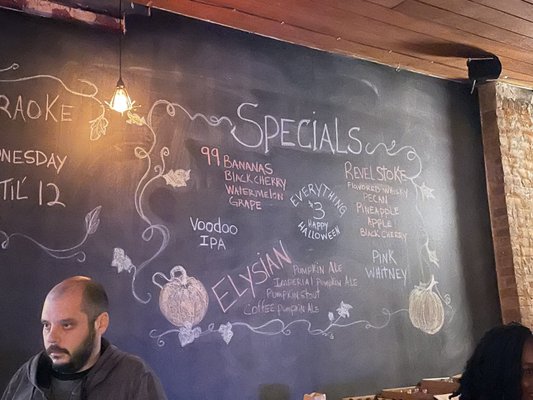 RAOKE
NESDAY
TIL' 12
SPECIALS
99 BANANAS
BLACK CHERRY
WATERMELON
GRAPE
VOODOO
IPA
EVERYTHING
$3
HAPPY
HALLOWEEN
REVEL STOKE
FLAVORED WHISKY
PECAN
PINEAPPLE
APPLE
BLACK CHERRY
PINK
WHITNEY
ELYSIAN
PUMPKIN ALE
IMPERIAL PUMPKIN ALE
PUMPKIN STOUT
COFFEE PUMPKIN ALE